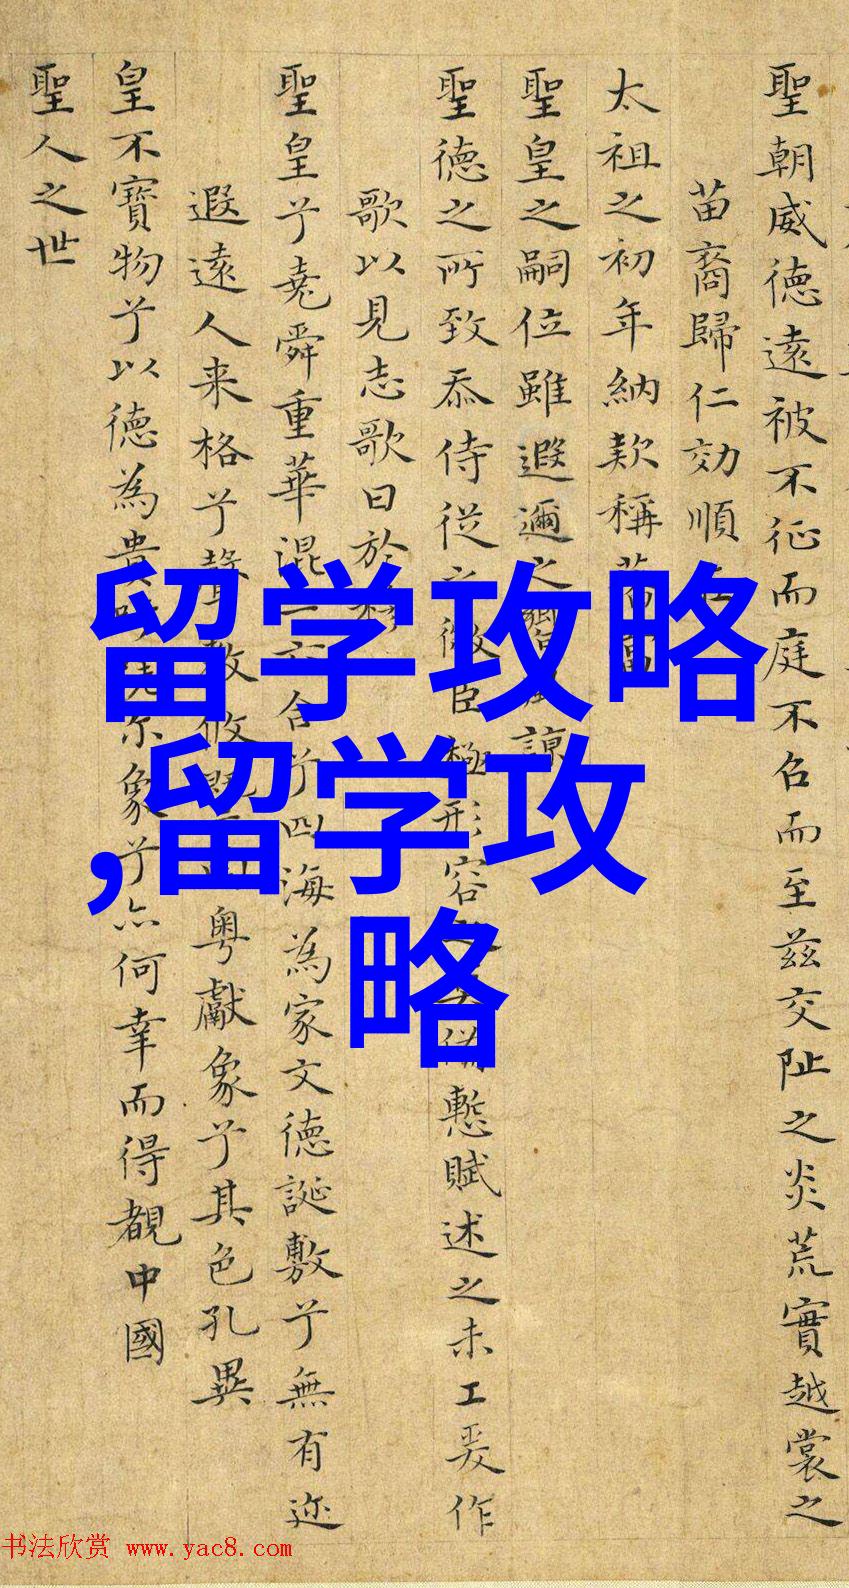 聖朝威德遠被不征而庭不召而至茲交阯之炎荒實越裳之
苗裔歸仁効順
太祖之初年納欵稱
聖皇之嗣位雖遐邇之諒
聖德之所致忝侍從之微臣極形容慙賦述之未工爰作
歌以見志歌曰於穆
聖皇兮堯舜重華混合兮四海為家文德誕敷兮無有迩
遐遠人来格兮聲教攸粵獻象兮其色孔異
皇不寶物兮以德為貴象兮亦何幸而得覩中國
聖人之世
留学攻略
,留学攻
略
书法欣赏 www.yac8.com